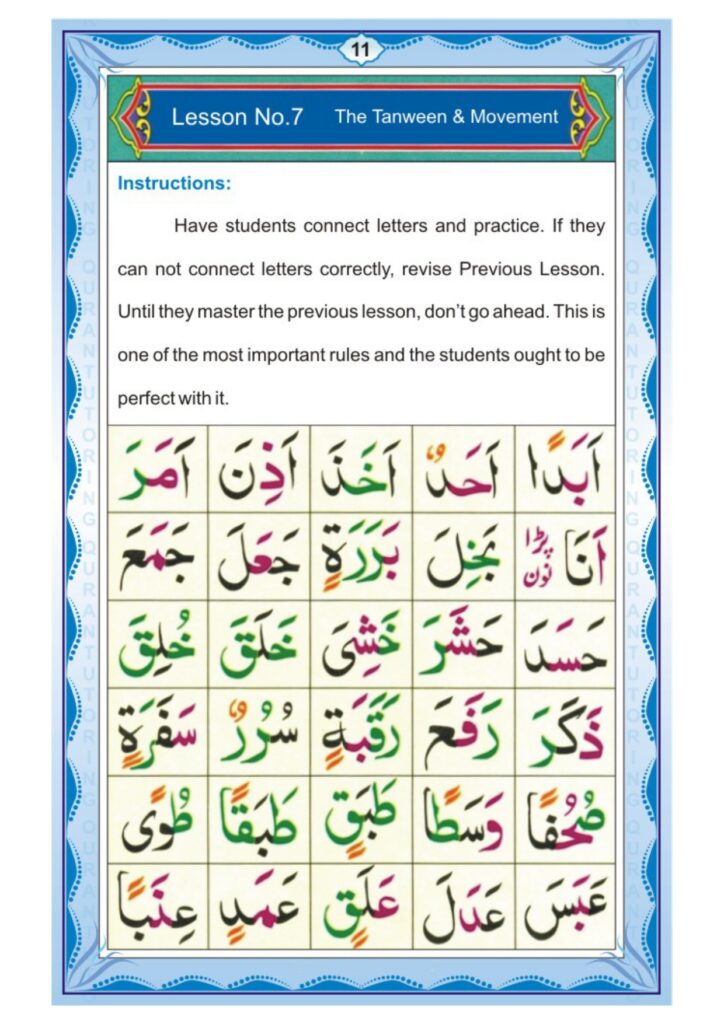 11
Lesson No.7 The Tanween & Movement
Instructions:
Have students connect letters and practice. If they
can not connect letters correctly, revise Previous Lesson.
Until they master the previous lesson, don't go ahead. This is
one of the most important rules and the students ought to be
perfect with it.
اَبَدًا اَحَدٌ اَخَذَ اَذِنَ اَمَرَ
اَنَا پڑا نون بَخِلَ بَرَرَةٍ جَعَلَ جَمَعَ
حَسَدَ حَشَرَ خَشِیَ خَلَقَ خُلِقَ
ذَكَرَ رَفَعَ رَقَبَةٍ سُرُرٌ سَفَرَةٍ
صُحُفًا وَسَطًا طَبَقٍ طَبَقًا طُوًی
عَبَسَ عَدَلَ عَلَقٍ عَمَدٍ عِنَبًا
QURANTUTORING QURANTUTORING